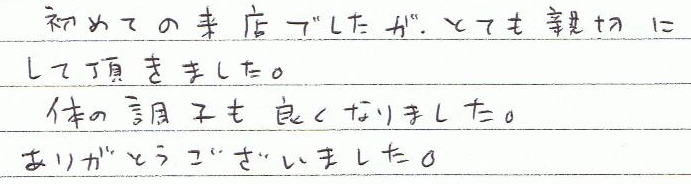 初めての来店でしたが、とても親切に
して頂きました。
体の調子も良くなりました。
ありがとうございました。